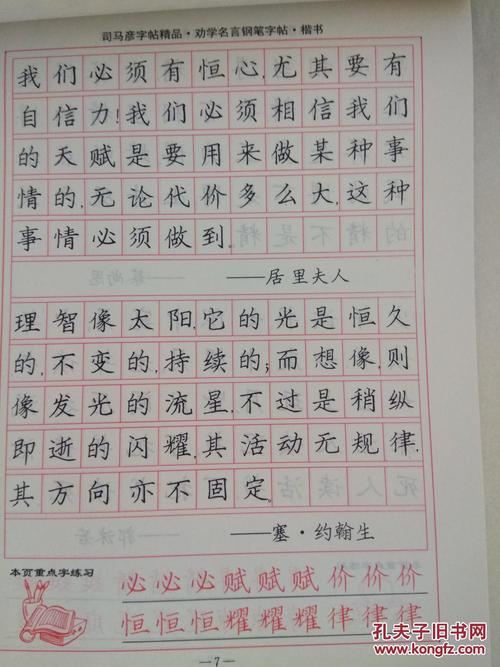 司马彦字帖精品·劝学名言钢笔字帖·楷书
我们必须有恒心,尤其要有
自信力!我们必须相信我们
的天赋是要用来做某种事
情的,无论代价多么大,这种
事情必须做到。
——居里夫人
理智像太阳,它的光是恒久
的,不变的,持续的;而想像,则
像发光的流星,不过是稍纵
即逝的闪耀,其活动无规律,
其方向亦不固定。
——塞·约翰生
本页重点字练习
必必必赋赋赋价价价
恒恒恒耀耀耀律律律
—7—
孔夫子旧书网
www.kongfz.com